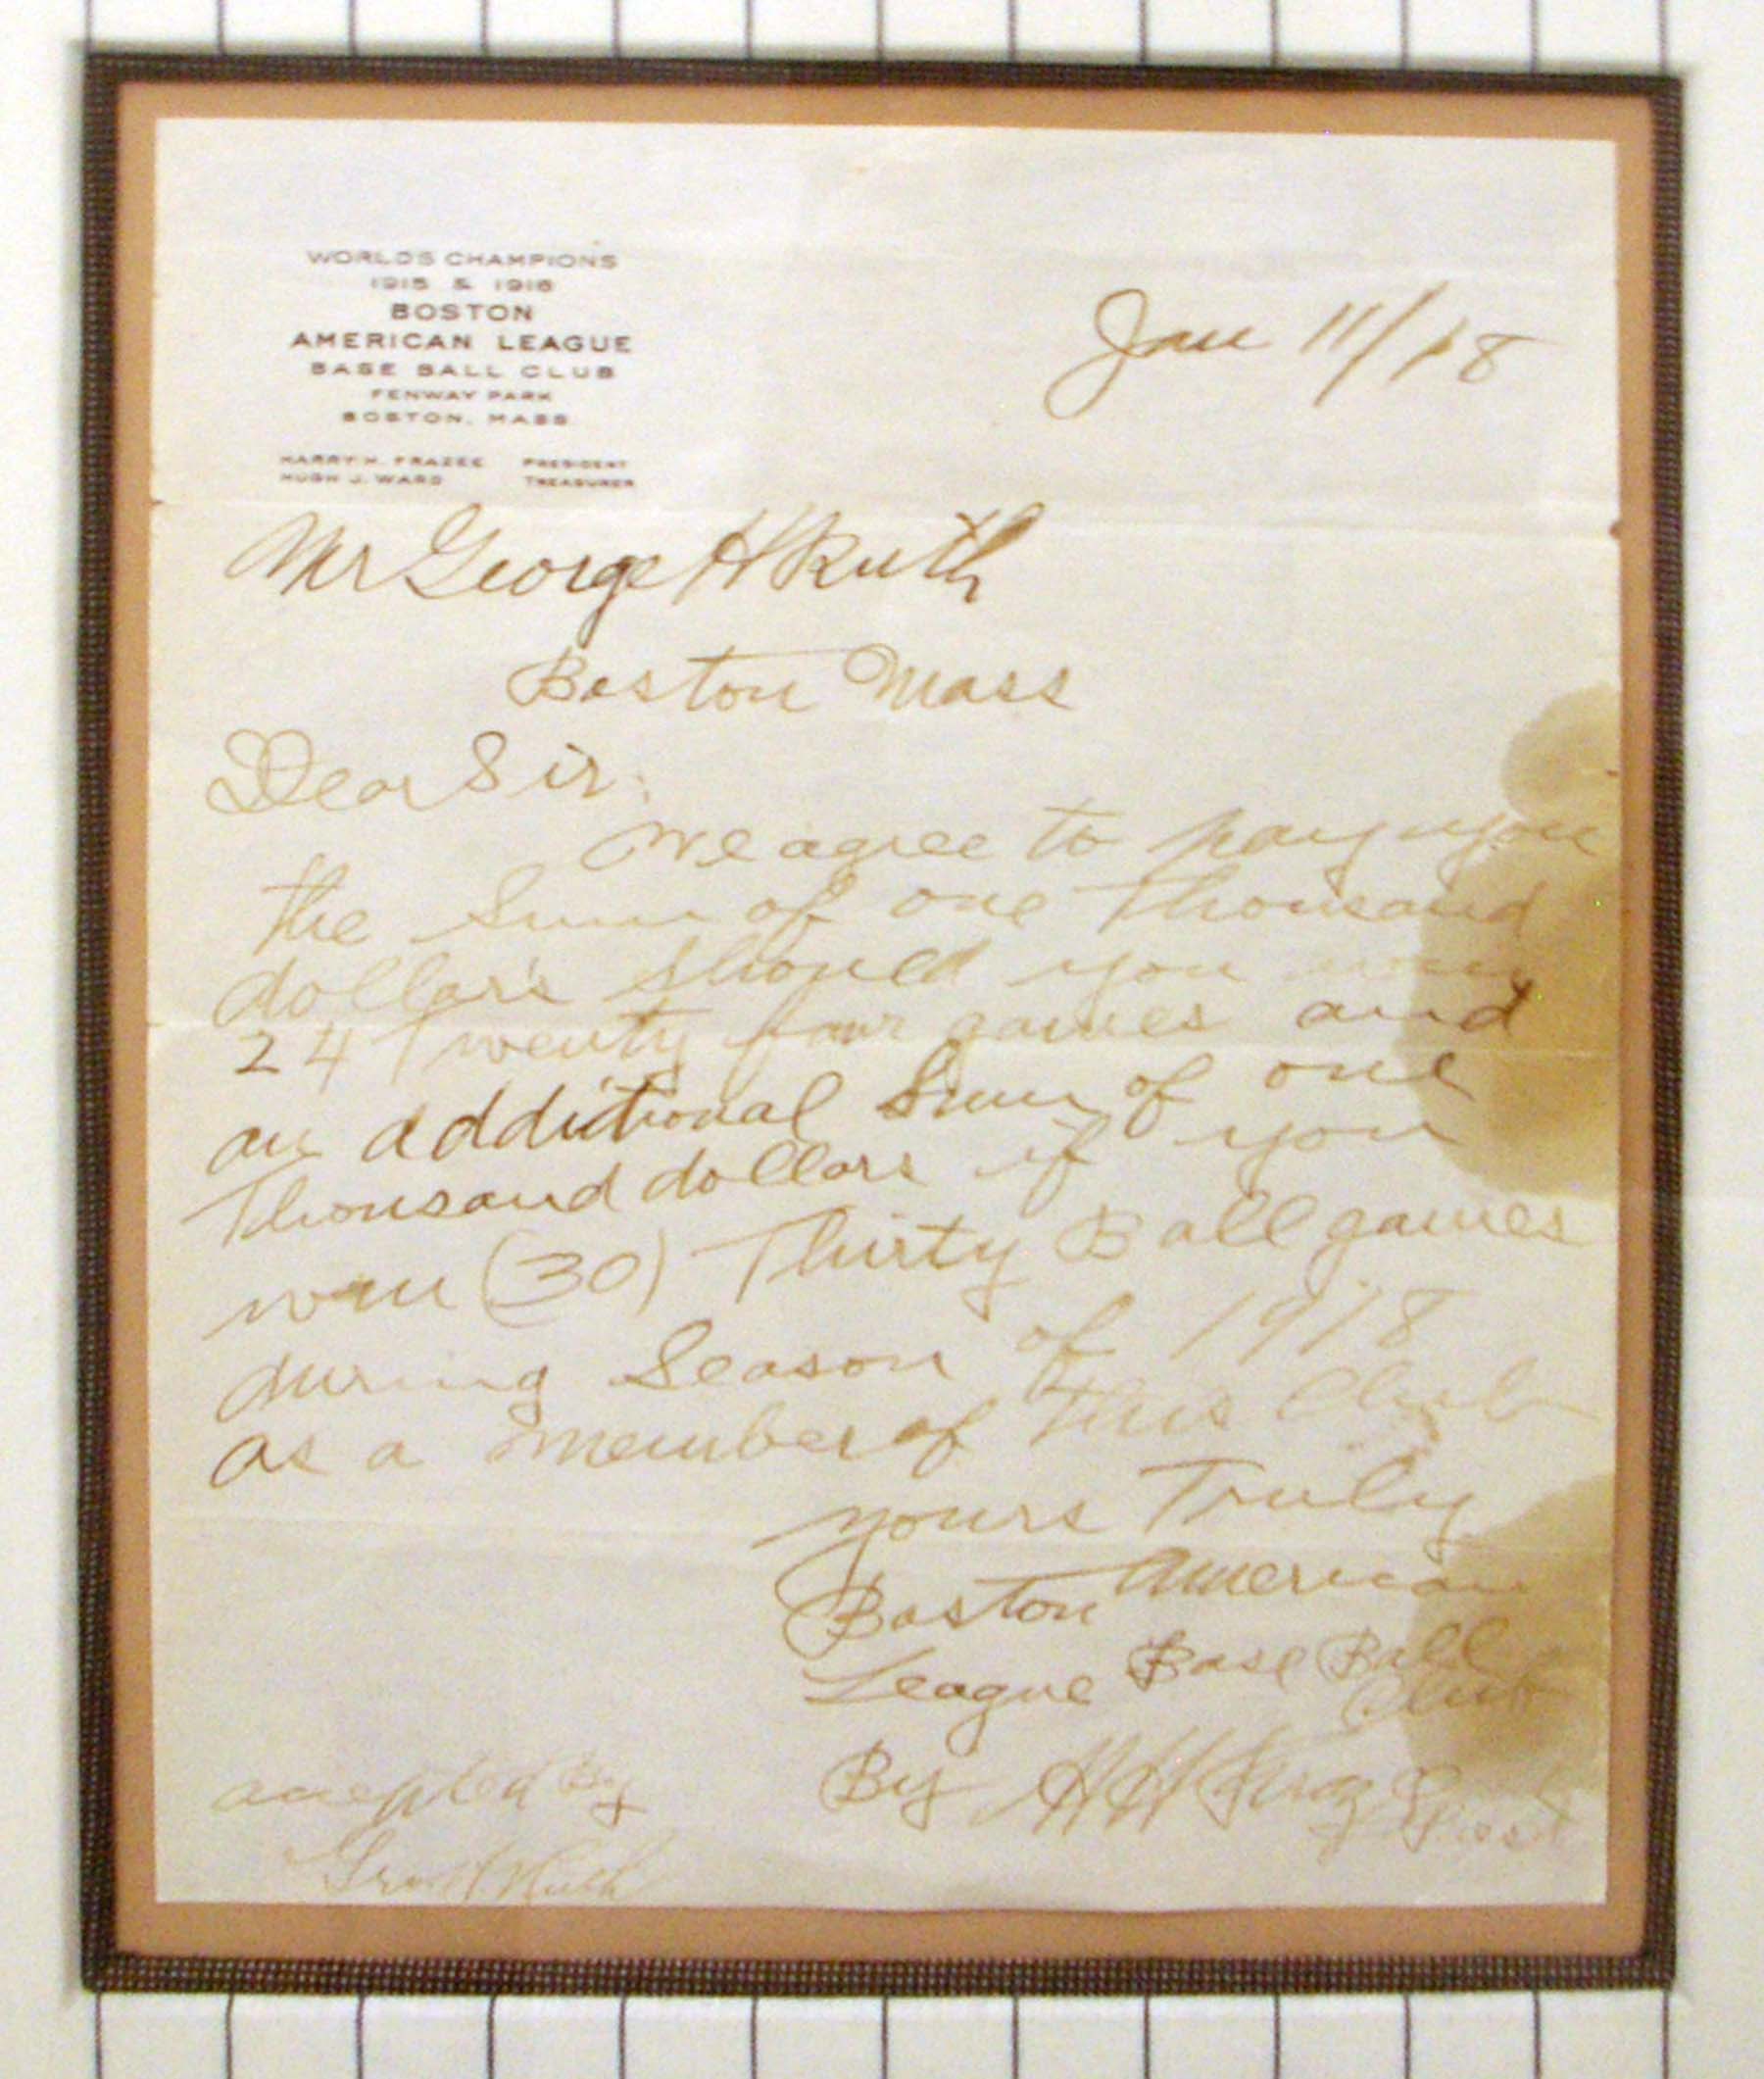 WORLD'S CHAMPIONS
1915 & 1916
BOSTON
AMERICAN LEAGUE
BASE BALL CLUB
FENWAY PARK
BOSTON, MASS
HARRY H. FRAZEE PRESIDENT
HUGH J. WARD TREASURER
Jan 11/18
Mr George H Ruth
Boston Mass
Dear Sir:
We agree to pay you
the Sum of one Thousand
dollars should you
24 Twenty four games and
an additional Sum of one
Thousand dollars if you
win (30) Thirty Ball games
during Season of 1918
as a member of This Club
yours Truly
Boston American
League Base Ball
Club
By H H Frazee
Prest
accepted By
Geo H Ruth